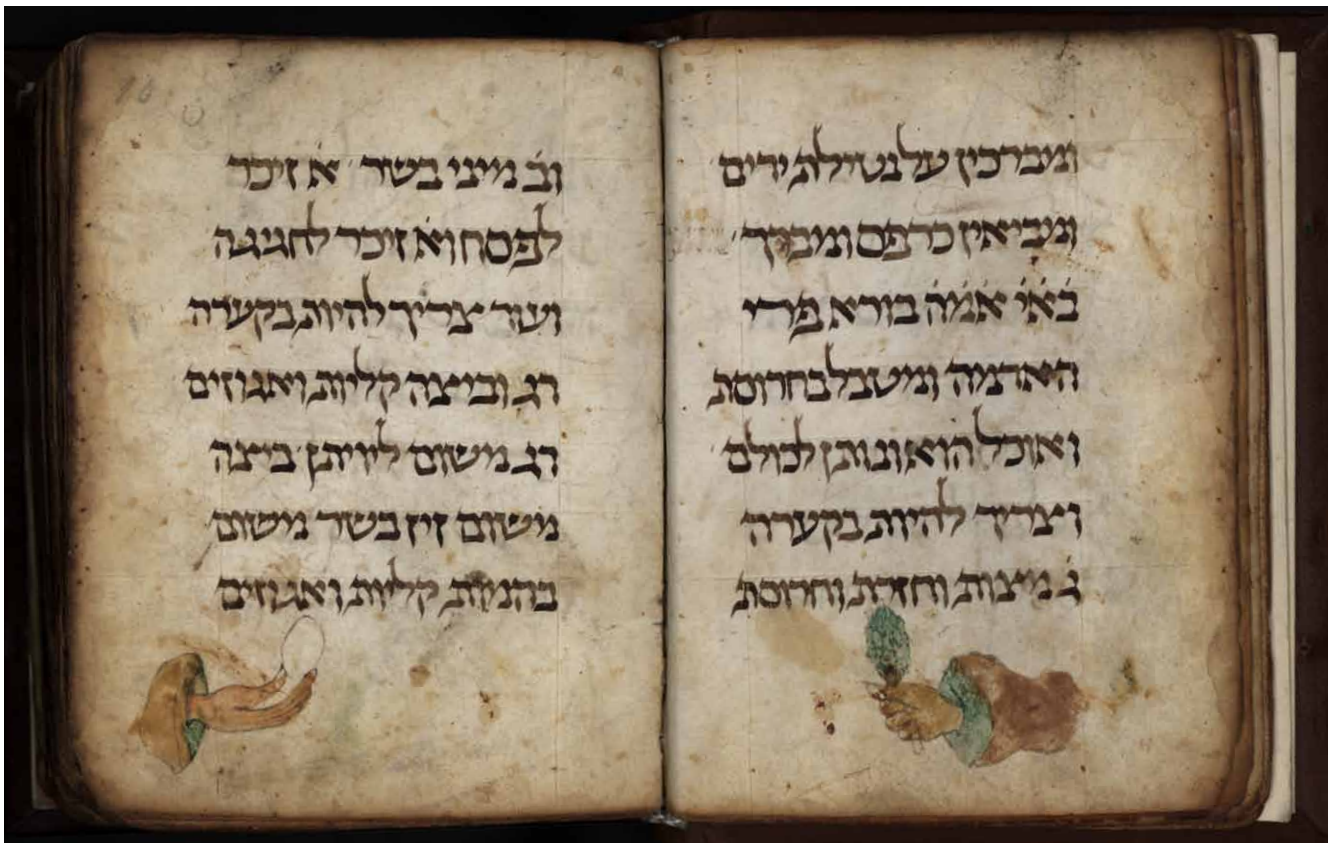 ומברכין על נטילת ידים
ומביאין כרפס ומברך
בֹאֹיֹ אֹמֹהֹ בורא פרי
האדמה ומטבל בחרוסת
ואוכל הוא ונותן לכולם
וצריך להיות בקערה
גֹ מצות וחזרת וחרוסת
ובֹ מיני בשר אֹ זיכר
לפסח ואֹ זיכר לחגיגה
ועוד צריך להיות בקערה
דג וביצה קליות ואגוזים
דג משום לויתן ביצה
משום זיז בשר משום
בהמות קליות ואגוזים